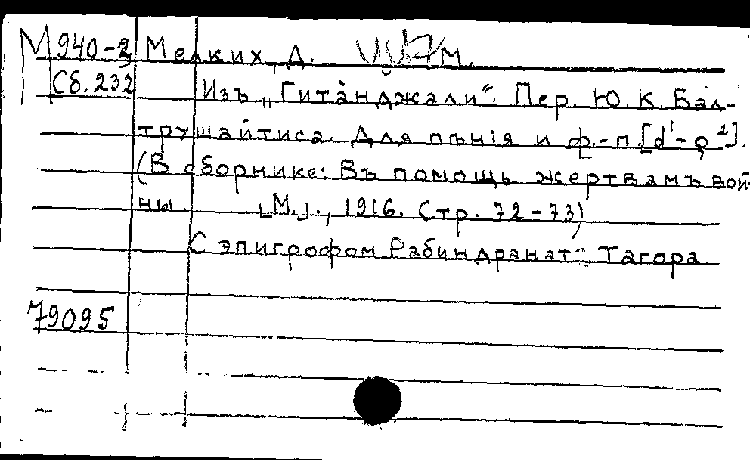 М 940-2 Мелких, Д. М.
Сб. 232 Изъ „Гитанджали“. Пер. Ю. К. Бал-
трушайтиса. Для пѣнія и ф.-п. [d¹-g²].
(В сборнике: Въ помощь жертвамъ вой-
ны. [М.], 1916. Стр. 72-73)
С эпигрофом Рабиндранат Тагора
79095